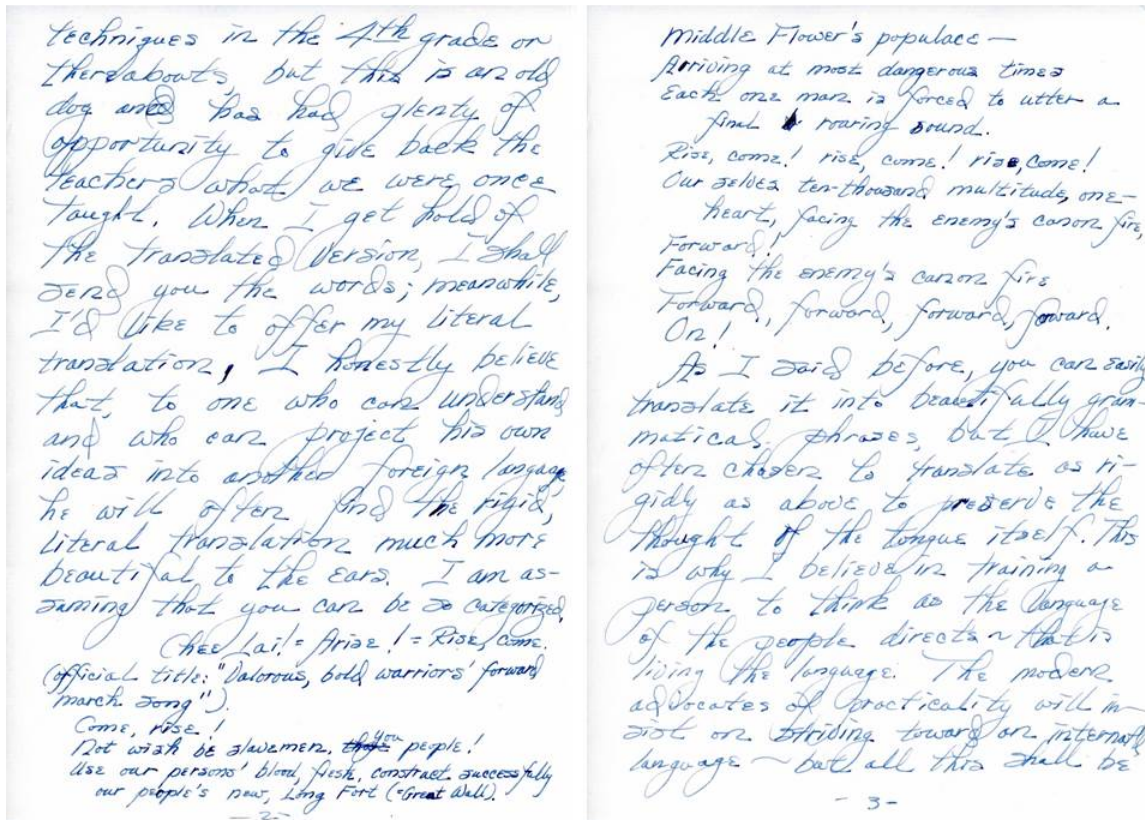 techniques in the 4th grade or
thereabouts, but this is an old
dog and has had plenty of
opportunity to give back the
teachers what we were once
taught. When I get hold of
the translated version, I shall
send you the words; meanwhile,
I'd like to offer my literal
translation, I honestly believe
that, to one who can understand
and who can project his own
ideas into another foreign language
he will often find the rigid,
literal translation much more
beautiful to the ears. I am as-
suming that you can be so categorized,
Chee Lai! = Arise! = Rise, come.
(official title: "Valorous, bold warriors' forward
march song").
Come, rise!
Not wish be slavemen, you people!
Use our persons' blood, flesh, construct successfully
our people's new, Long Fort (=Great Wall).
-2-
Middle Flower's populace —
Arriving at most dangerous times
Each one man is forced to utter a
final roaring sound.
Rise, come! rise, come! rise, come!
Our selves ten-thousand multitude, one-
heart, facing the enemy's canon fire,
Forward!
Facing the enemy's canon fire
Forward, forward, forward, forward.
On!
As I said before, you can easily
translate it into beautifully gram-
matical, phrases, but I have
often chosen to translate as ri-
gidly as above to preserve the
thought of the tongue itself. This
is why I believe in training a
person to think as the language
of the people directs ~ that is
living the language. The modern
advocates of practicality will in-
sist on striding toward an internat'l
language ~ but all this shall be
- 3 -